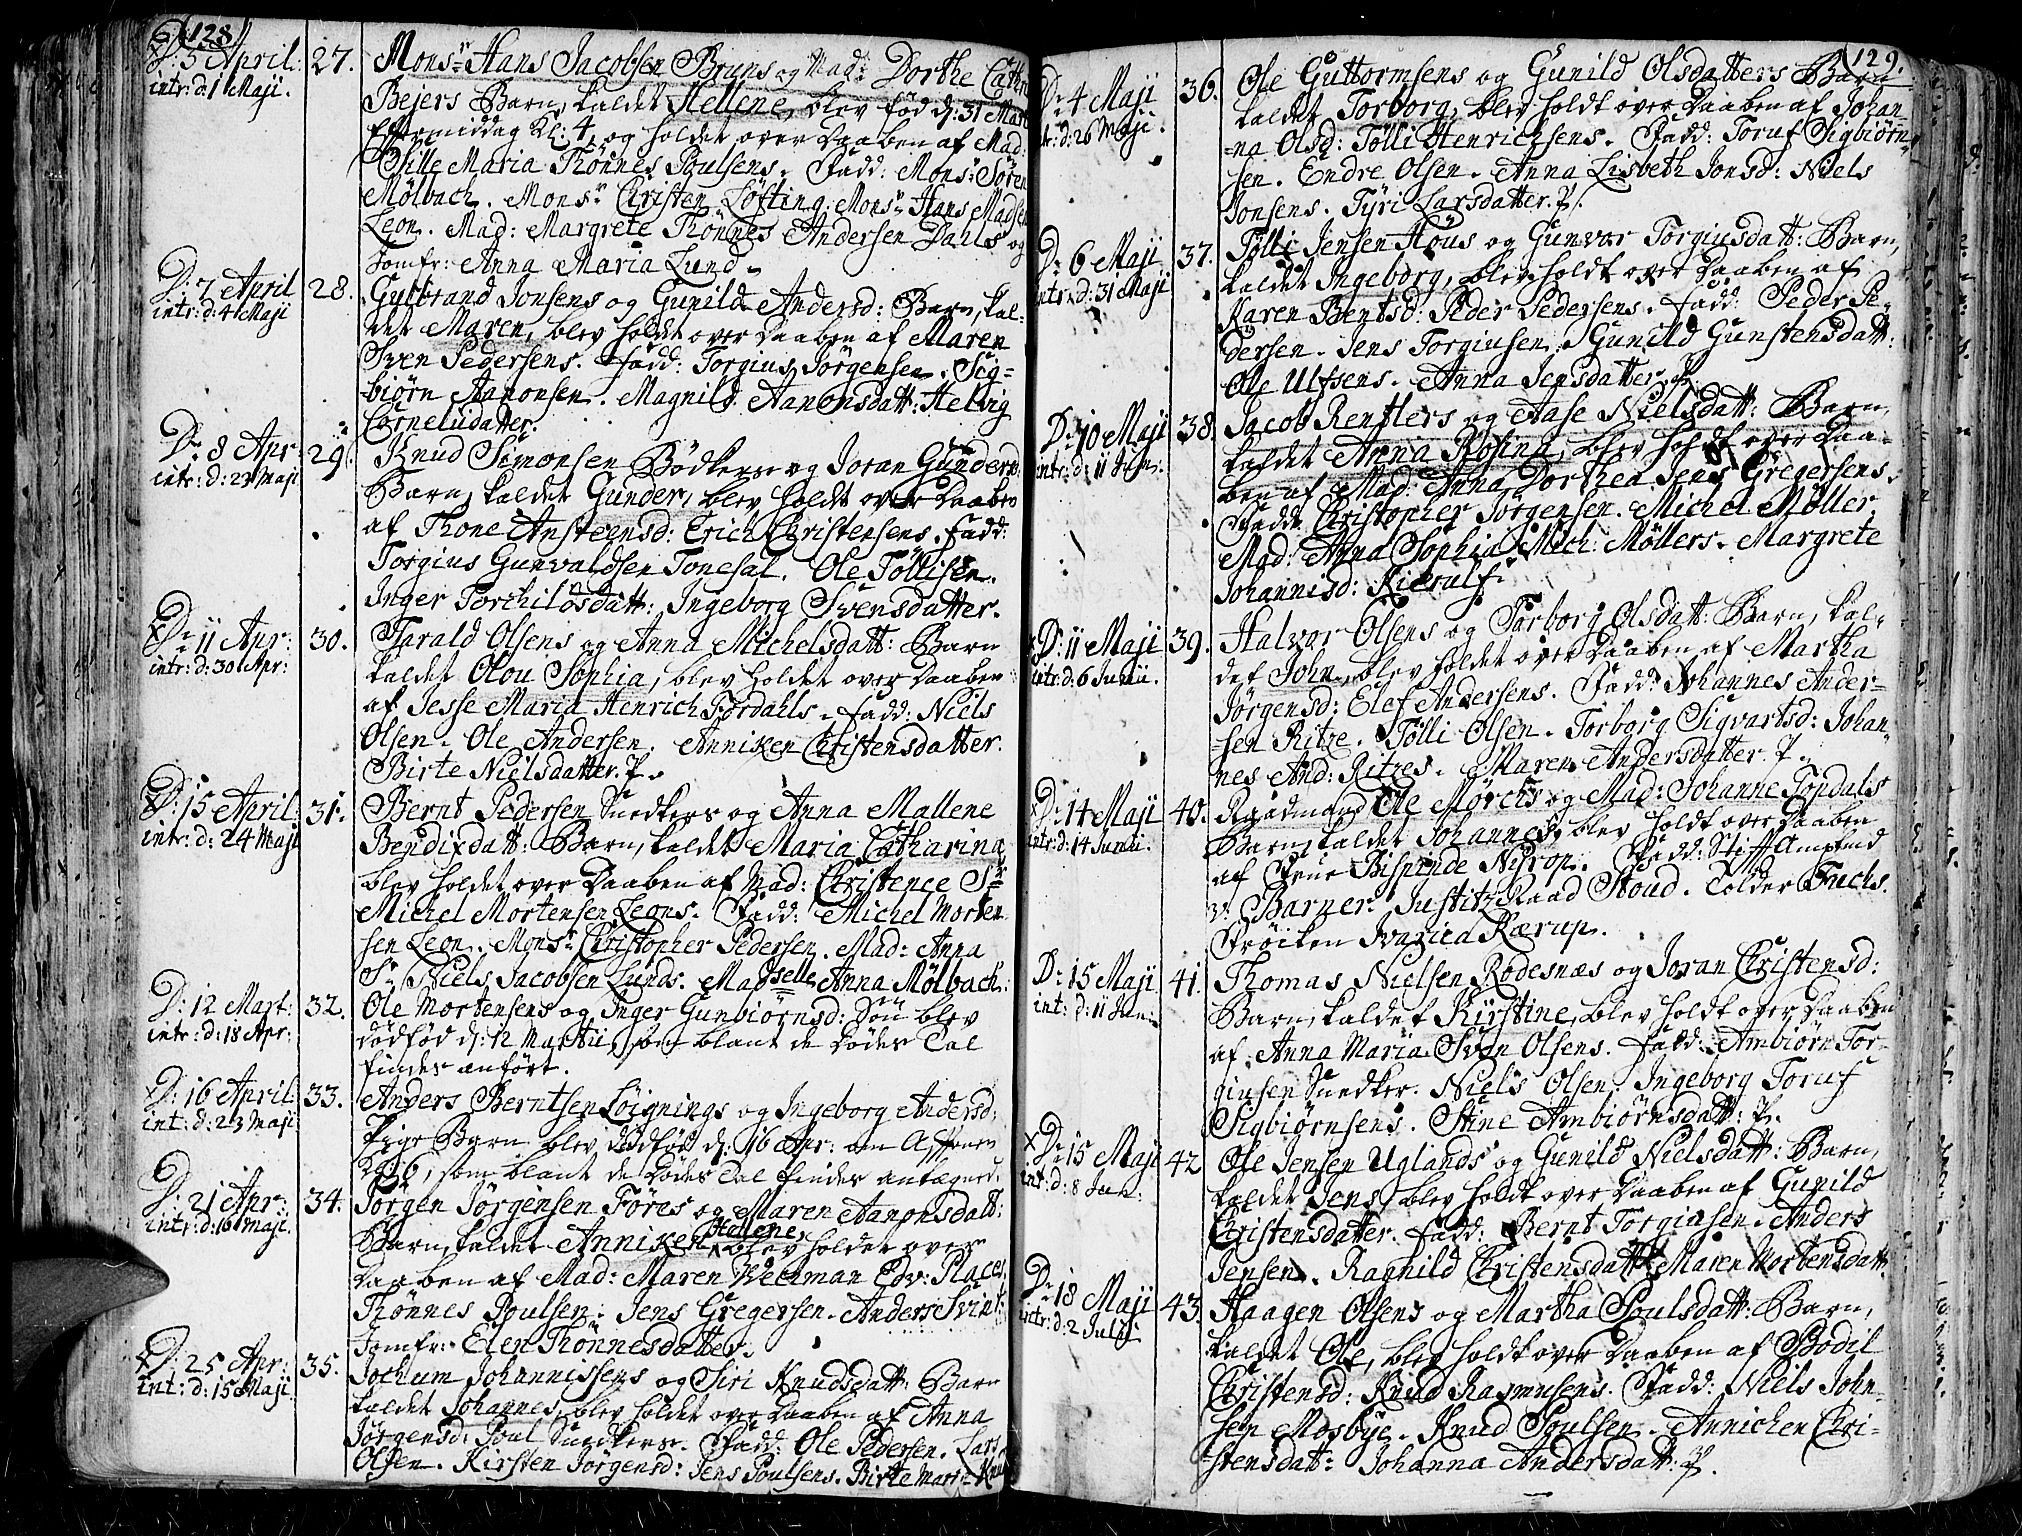 128
D: 5 April: 27. Mons:r Hans Jacobsen Bruns og Mad: Dorthe Cath:
intr: d: 1 Maji. Bejers Barn, kaldet Hellene, blev föd d: 31 Mart:
Eftermiddag Kl: 4, og holdet over Daaben af Mad:
Sille Maria Thönnes Poulsens. Fadd: Mons:r Sören
Mölbach. Mons:r Christen Löfting. Mons:r Hans Madsen
Leon. Mad: Margrete Thönnes Andersen Dahls og
Jomfr: Anna Maria Lund.
D: 7 April 28. Gulbrand Jonsens og Gunild Andersd: Barn, kal-
intr: d: 4 Maji det Maren, blev holdt over Daaben af Maren
Sven Pedersens. Fadd: Torgius Jörgensen. Sig-
biörn Aanonsen. Magnild Aanonsdatt: Helvig
Corneliidatter.
D: 8 Apr: 29. Knud Simonsen Bödkers og Joran Gunders:
intr: d: 23 Maji Barn, kaldet Gunder, blev holdt over Daaben
af Thone Ansteensd: Erich Christensens. Fadd:
Torgius Gunvaldsen Tonesal. Ole Töllisen.
Inger Torchildsdatt: Ingeborg Svensdatter.
D: 11 Apr: 30. Tarald Olsens og Anna Michelsdatt: Barn
intr: d: 30 Apr: kaldet Olou Sophia, blev holdet over Daaben
af Jesse Maria Henrich Tordahls. Fadd: Niels
Olsen. Ole Andersen. Anniken Christensdatter.
Birte Nielsdatter. P.
D: 15 April: 31. Bernt Pedersen Snedkers og Anna Mallene
intr: d: 24 Maji Bendixdatt: Barn, kaldet Maria Catharina
blev holdet over Daaben af Mad: Christence S:r
Michel Mortensen Leons. Fadd: Michel Morten-
sen Leon. Mons:r Christopher Pedersen. Mad: Anna
S:r Niels Jacobsen Lunds. Madselle Anna Mölbach.
D: 12 Mart: 32. Ole Mortensens og Inger Gunbiörnsd: Sön blev
intr: d: 18 Apr: dödföd d: 12 Martii, som blant de Dödes Tal
findes anfört.
D: 16 April: 33. Anders Berntsen Löignings og Ingeborg Andersd:
int: d: 23 Maji Pige Barn blev dödföd d: 16 Apr: om Aftenen
som blant de Dödes Tal findes antegned.
D: 21 Apr: 34. Jörgen Jörgensen Föres og Maren Aanonsdatt:
intr: d: 16 Maji. Barn, kaldet Anniken Hellene, blev holdet over
Daaben af Mad: Maren Wechman Edv: Places.
Thönnes Poulsen. Jens Gregersen. Anders Svint:
Jomfr: Elen Thönnesdatter.
D: 25 Apr: 35. Jochum Johannissens og Siri Knudsdatt: Barn
int: d: 15 Maji kaldet Johannes, blev holdet over Daaben af Anna
Jörgensd: Poul Snedkers. Fadd: Ole Pedersen. Lars
Olsen. Kirsten Jorgensd: Jens Poulsens. Birte Maria Knud
129.
D: 4 Maji 36. Ole Guttormsens og Gunild Olsdatters Barn
intr: d: 26 Maji. kaldet Torborg, blev holdt over Daaben af Johan-
na Olsd: Tölli Henrichsens. Fadd: Toruf Sigbiörn-
sen. Endre Olsen. Anna Lisbeth Jonsd: Niels
Jonsens. Tyri Larsdatter. P.
D: 6 Maji 37. Tölli Jensen Höus og Gunvor Torgiusdatt: Barn,
intr: d: 31 Maji kaldet Ingeborg, blev holdt over Daaben af
Karen Bentsd: Peder Pedersens. Fadd: Peder Pe-
dersen. Jens Torgiusen. Gunild Gunstensdatt:
Ole Ulfsens. Anna Jensdatter. P.
D: 10 Maji 38. Jacob Rentlers og Aase Nielsdatt: Barn,
intr: d: 11 Jun: kaldet Anna Rosina, blev holdt over Daa-
ben af Mad: Anna Dorthea Jens Gregersens.
Fadd: Christopher Jorgensen. Michel Möller.
Mad: Anna Sophia Mich: Möllers. Margrete
Johannisd: Kierulf.
D: 11 Maji 39. Halvor Olsens og Torborg Olsdatt: Barn, kal-
intr: d: 6 Junii. det John, blev holdet over Daaben af Martha
Jörgensd: Elef Andersens. Fadd: Johannes Ander-
sen Ritze. Tölli Olsen. Torborg Sigvartsd: Johan-
nes And: Ritzes. Maren Andersdatter. P.
D: 14 Maji 40. Raadmand Ole Mörchs og Mad: Johanne Topdals
intr: d: 14 Junii. Barn, kaldet Johannes, blev holdt over Daaben
af Frue Bispinde Nyrop. Fadd: Stift Amptmd
v: Barner. Justitz Raad Stoud. Tolder Fuchs.
Fröiken Kærup.
D: 15 Maji 41. Thomas Nielsen Rodesnæs og Joran Christensd:
int: d: 11 Jun: Barn, kaldet Kirstine, blev holdt over Daaben
af Anna Maria Sven Olsens. Fadd: Ambiörn Tor-
giusen Snedker. Niels Olsen. Ingeborg Toruf
Sigbiörnsens. Stine Ambiörnsdatt: P.
D: 15 Maji 42 Ole Jensen Uglands og Gunild Nielsdatt: Barn,
int: d: 8 Jun: kaldet Jens, blev holdt over Daaben af Gunild
Christensdatter. Fadd: Bernt Torgiusen. Anders
Jensen. Ragnild Christensdatt: Maren Mortensdatt:
D: 18 Maji 43. Haagen Olsens og Martha Poulsdatt: Barn,
intr: d: 2 Julii kaldet Ole, blev holdt over Daaben af Bodil
Christensd: Knud Rasmusens. Fadd: Niels John-
sen Mosbye. Knud Poulsen. Annichen Chri-
stensdatt: Johanna Andersdatt: P.